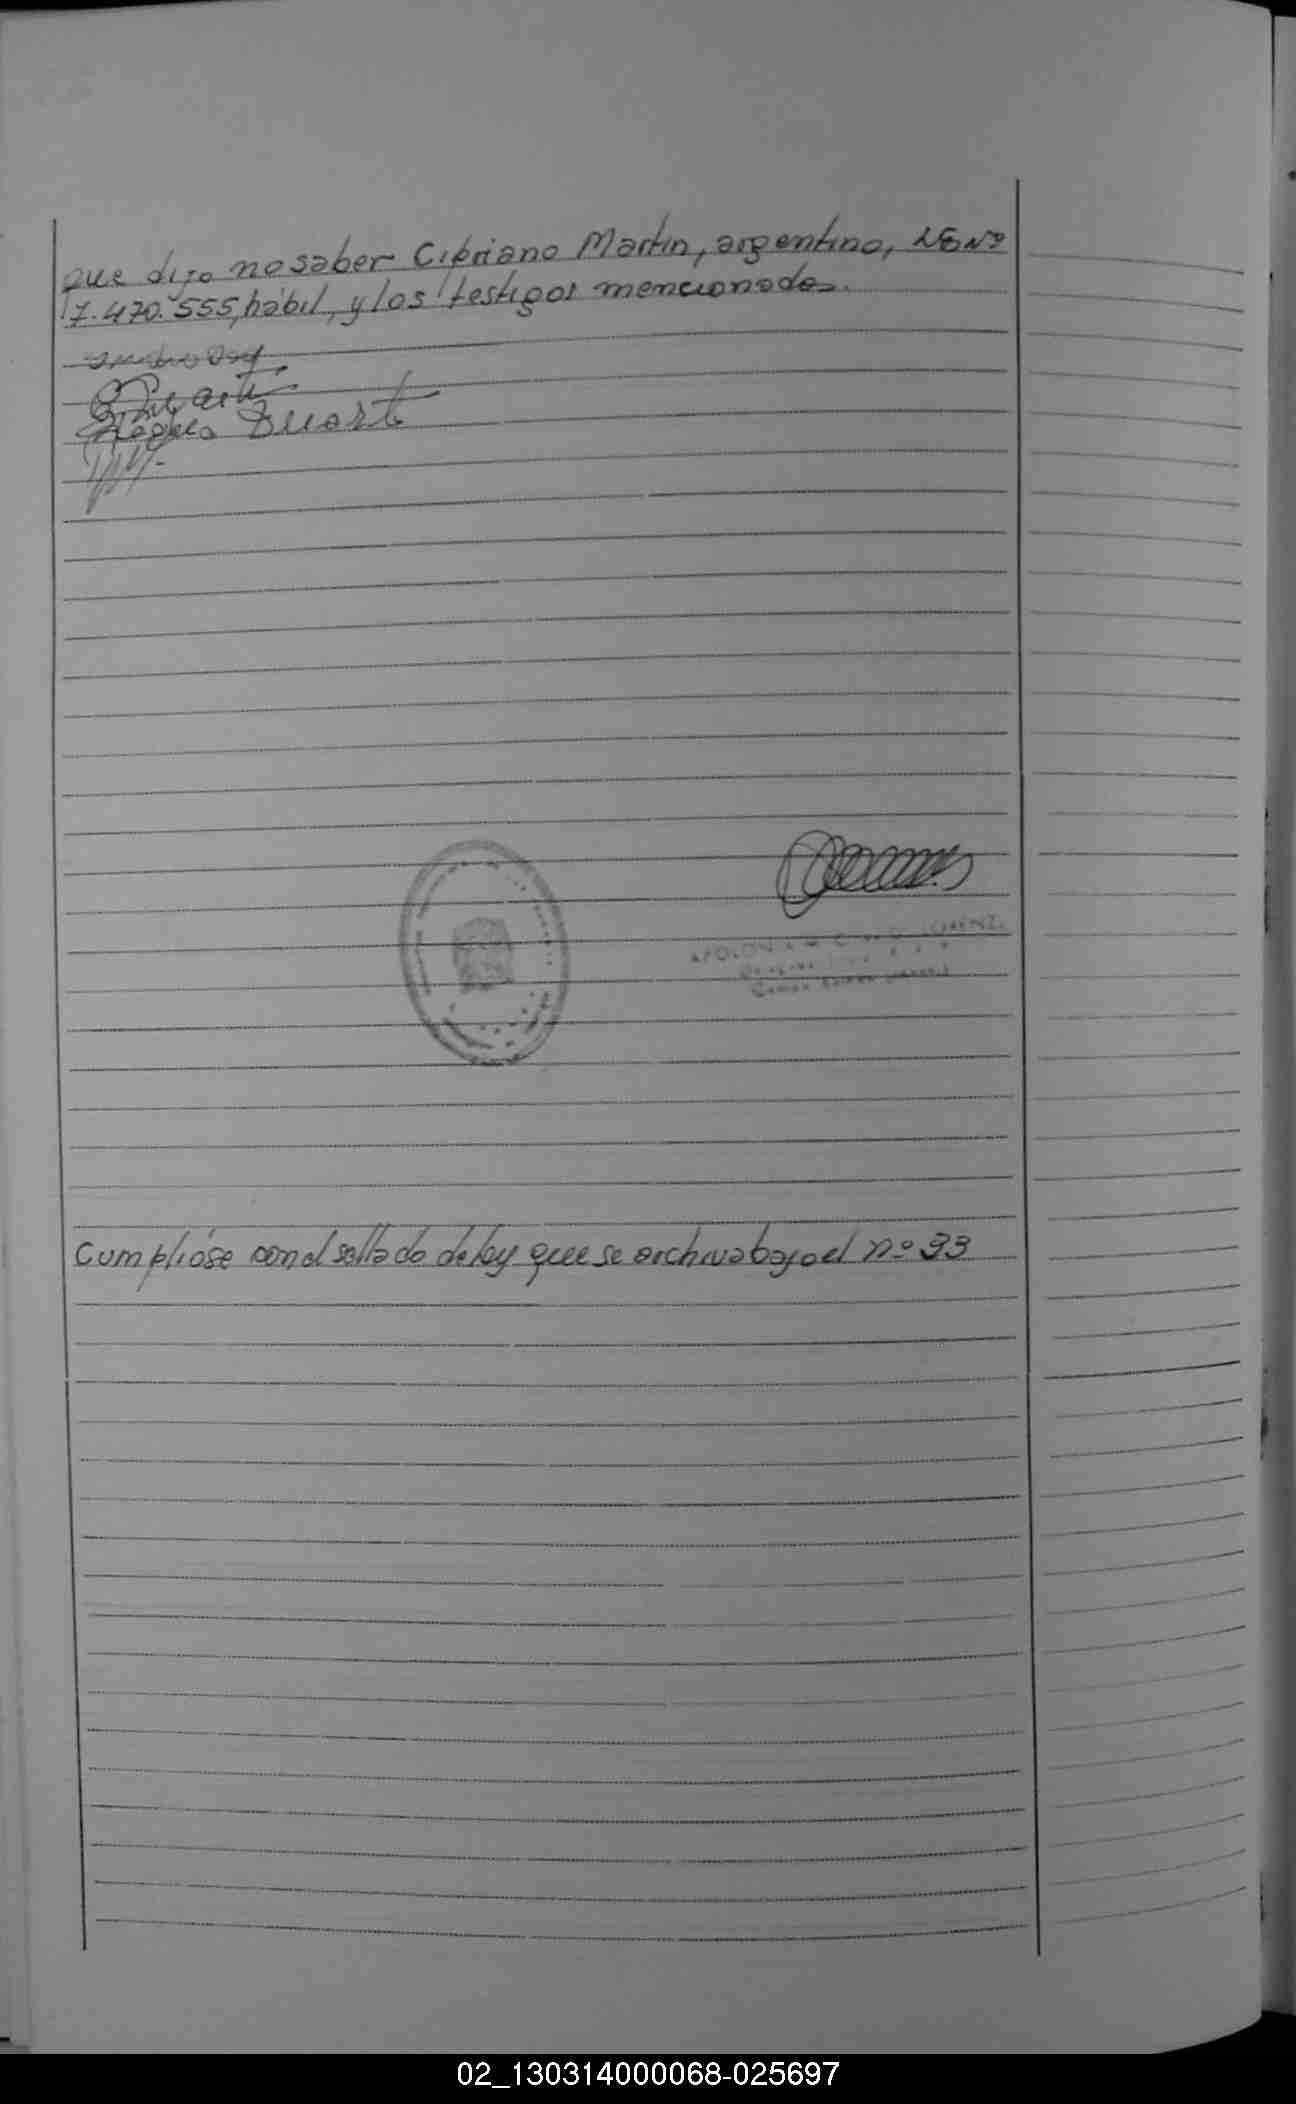 que dijo no saber Cipriano Martin, argentino, LE Nº
7.470.555, hábil, y los testigos mencionados.
Duarte
Cumplióse con el sellado de ley que se archiva bajo el nº 33
02_130314000068-025697